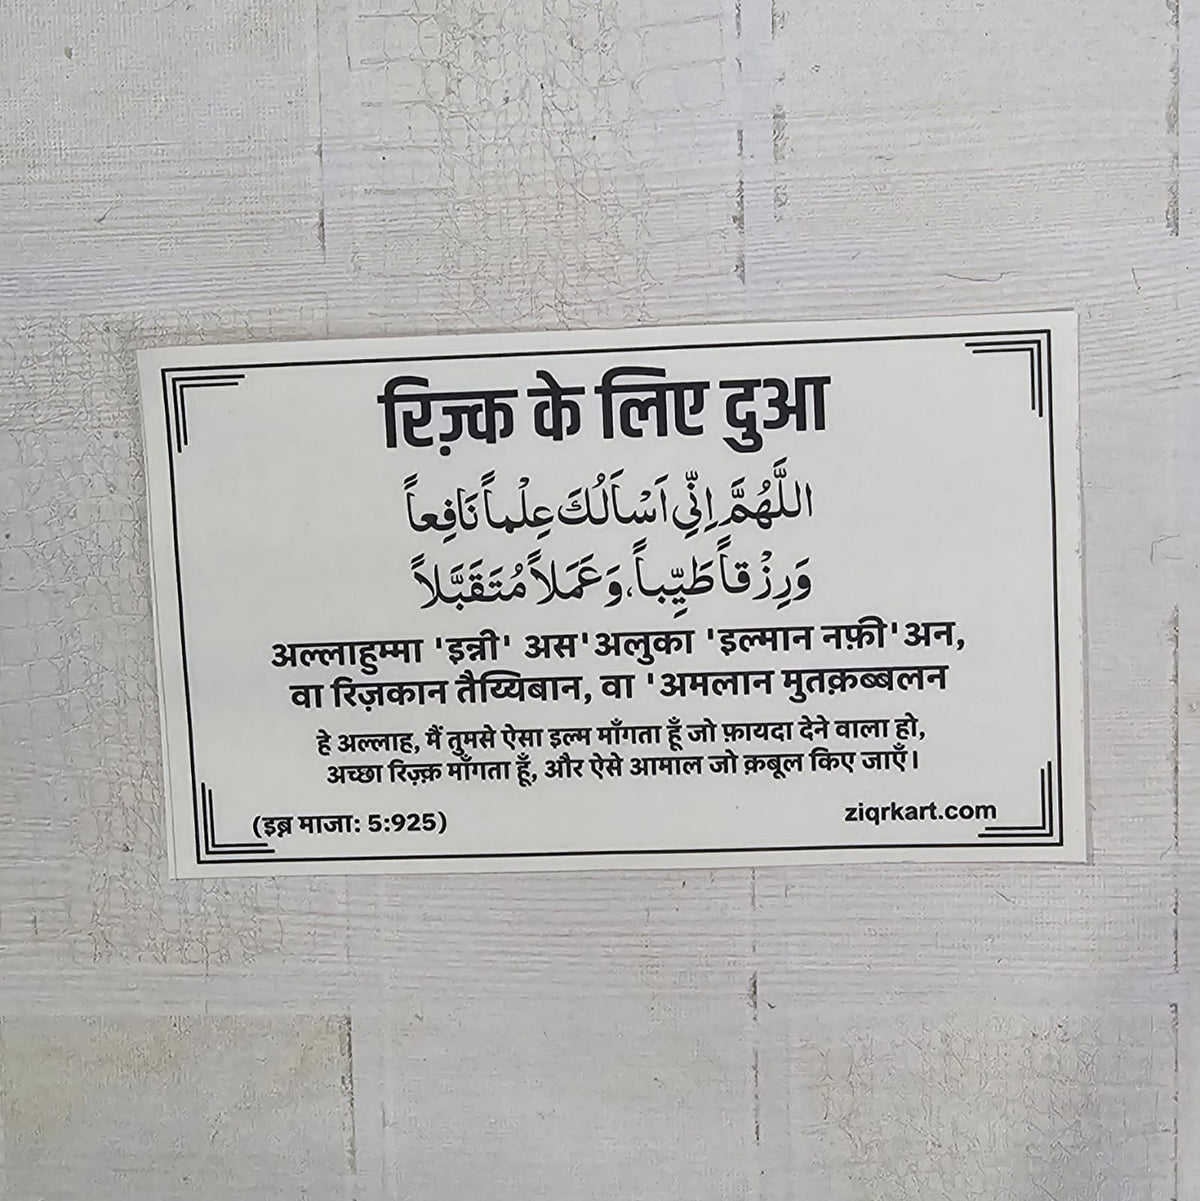 रिज़्क के लिए दुआ
اللَّهُمَّ اِنِّي اَسْاَلُكَ عِلْماً نَافِعاً
وَرِزْقاً طَيِّباً، وَعَمَلاً مُتَقَبَّلاً
अल्लाहुम्मा 'इन्नी' अस'अलुका 'इल्मान नफ़ी'अन,
वा रिज़कान तैय्यिबान, वा 'अमलान मुतक़ब्बलन
हे अल्लाह, मैं तुमसे ऐसा इल्म माँगता हूँ जो फ़ायदा देने वाला हो,
अच्छा रिज़्क़ माँगता हूँ, और ऐसे आमाल जो क़बूल किए जाएँ।
(इब्न माजा: 5:925)
ziqrkart.com